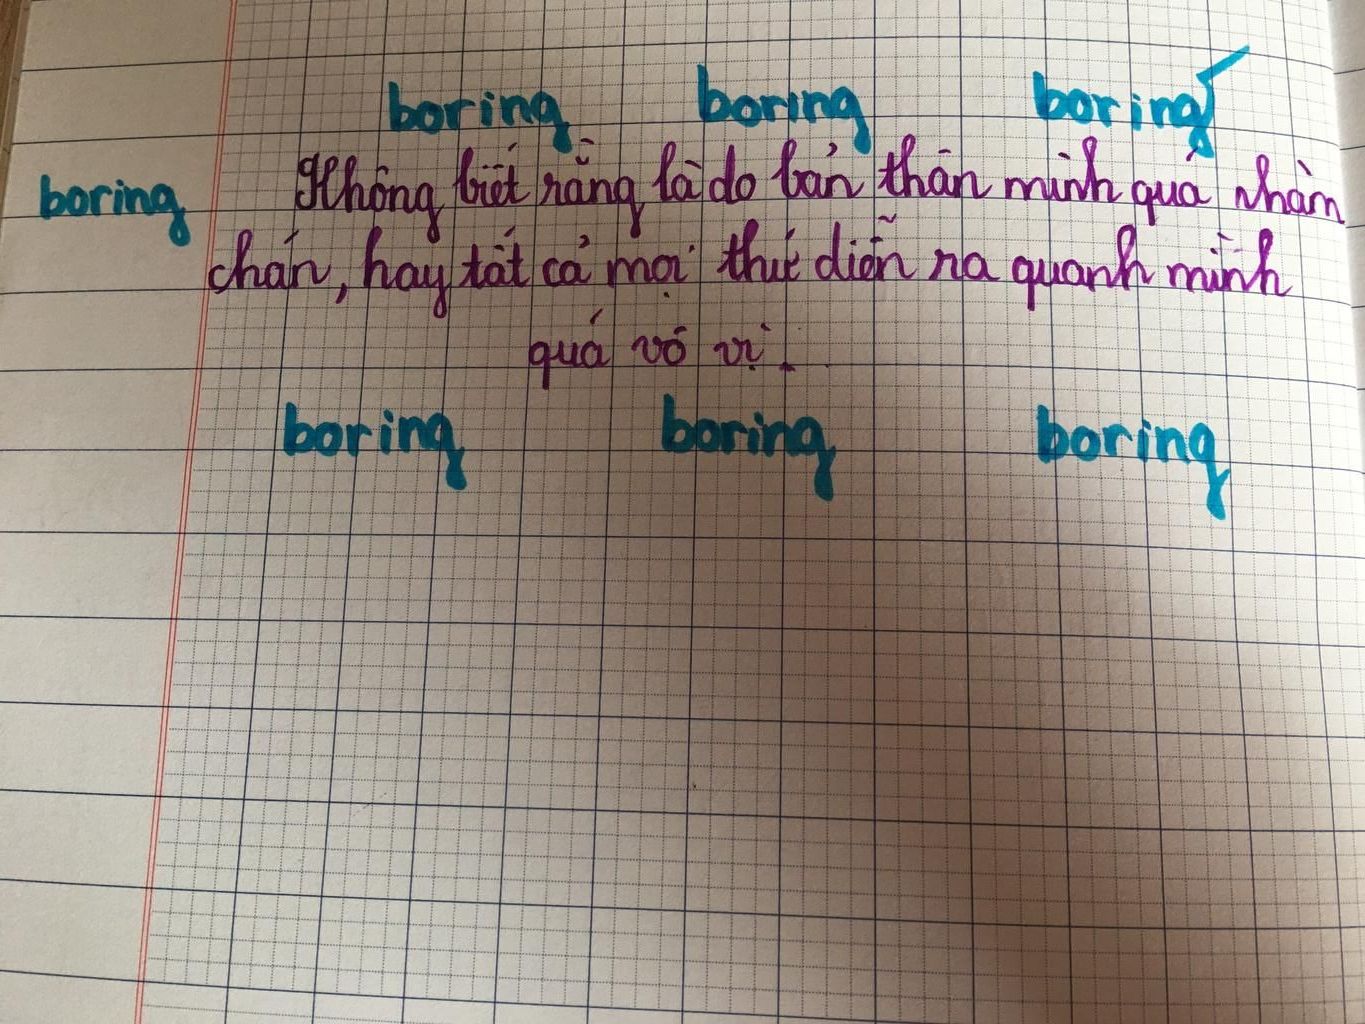 boring boring boring
boring
Không biết rằng là do bản thân mình quá nhàm
chán, hay tất cả mọi thứ diễn ra quanh mình
quá vô vị.
boring boring boring